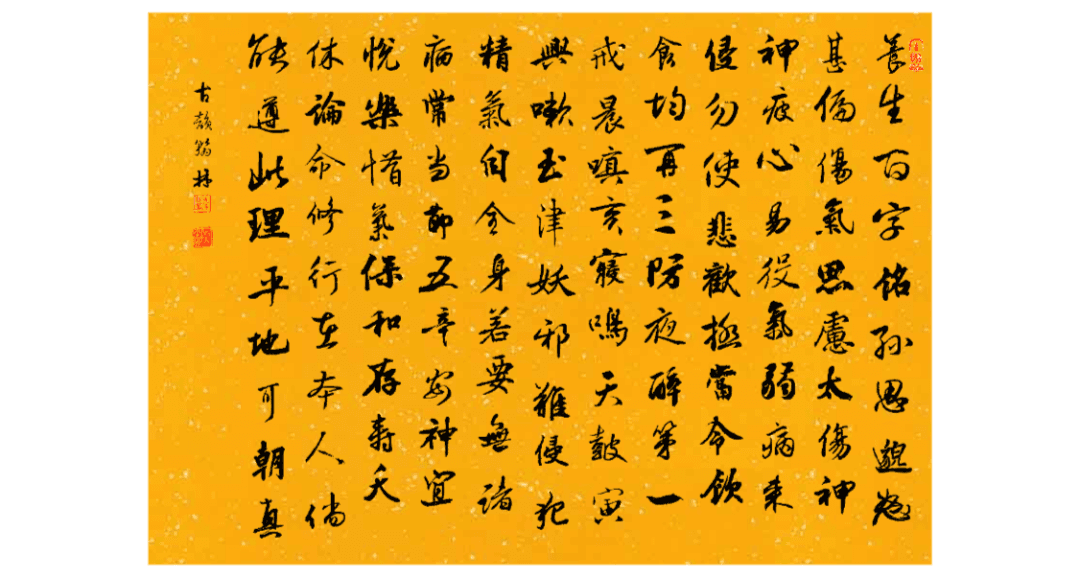 養生百字銘孫思邈怒
甚偏傷氣思慮太傷神
神疲心易役氣弱病来
侵勿使悲歡極當令飲
食均再三防夜醉第一
戒晨嗔亥寢鳴天鼓寅
興嗽玉津妖邪難侵犯
精氣自全身若要無諸
病常当節五辛安神宜
悦樂惜氣保和存壽夭
休論命修行在本人倘
能遵此理平地可朝真
古韻翰林